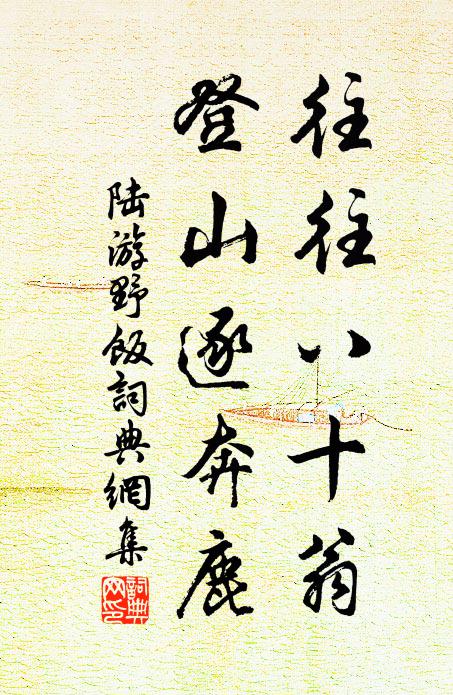 往往八十翁
登山逐奔鹿
陆游野飯詞典網集
詞典网印